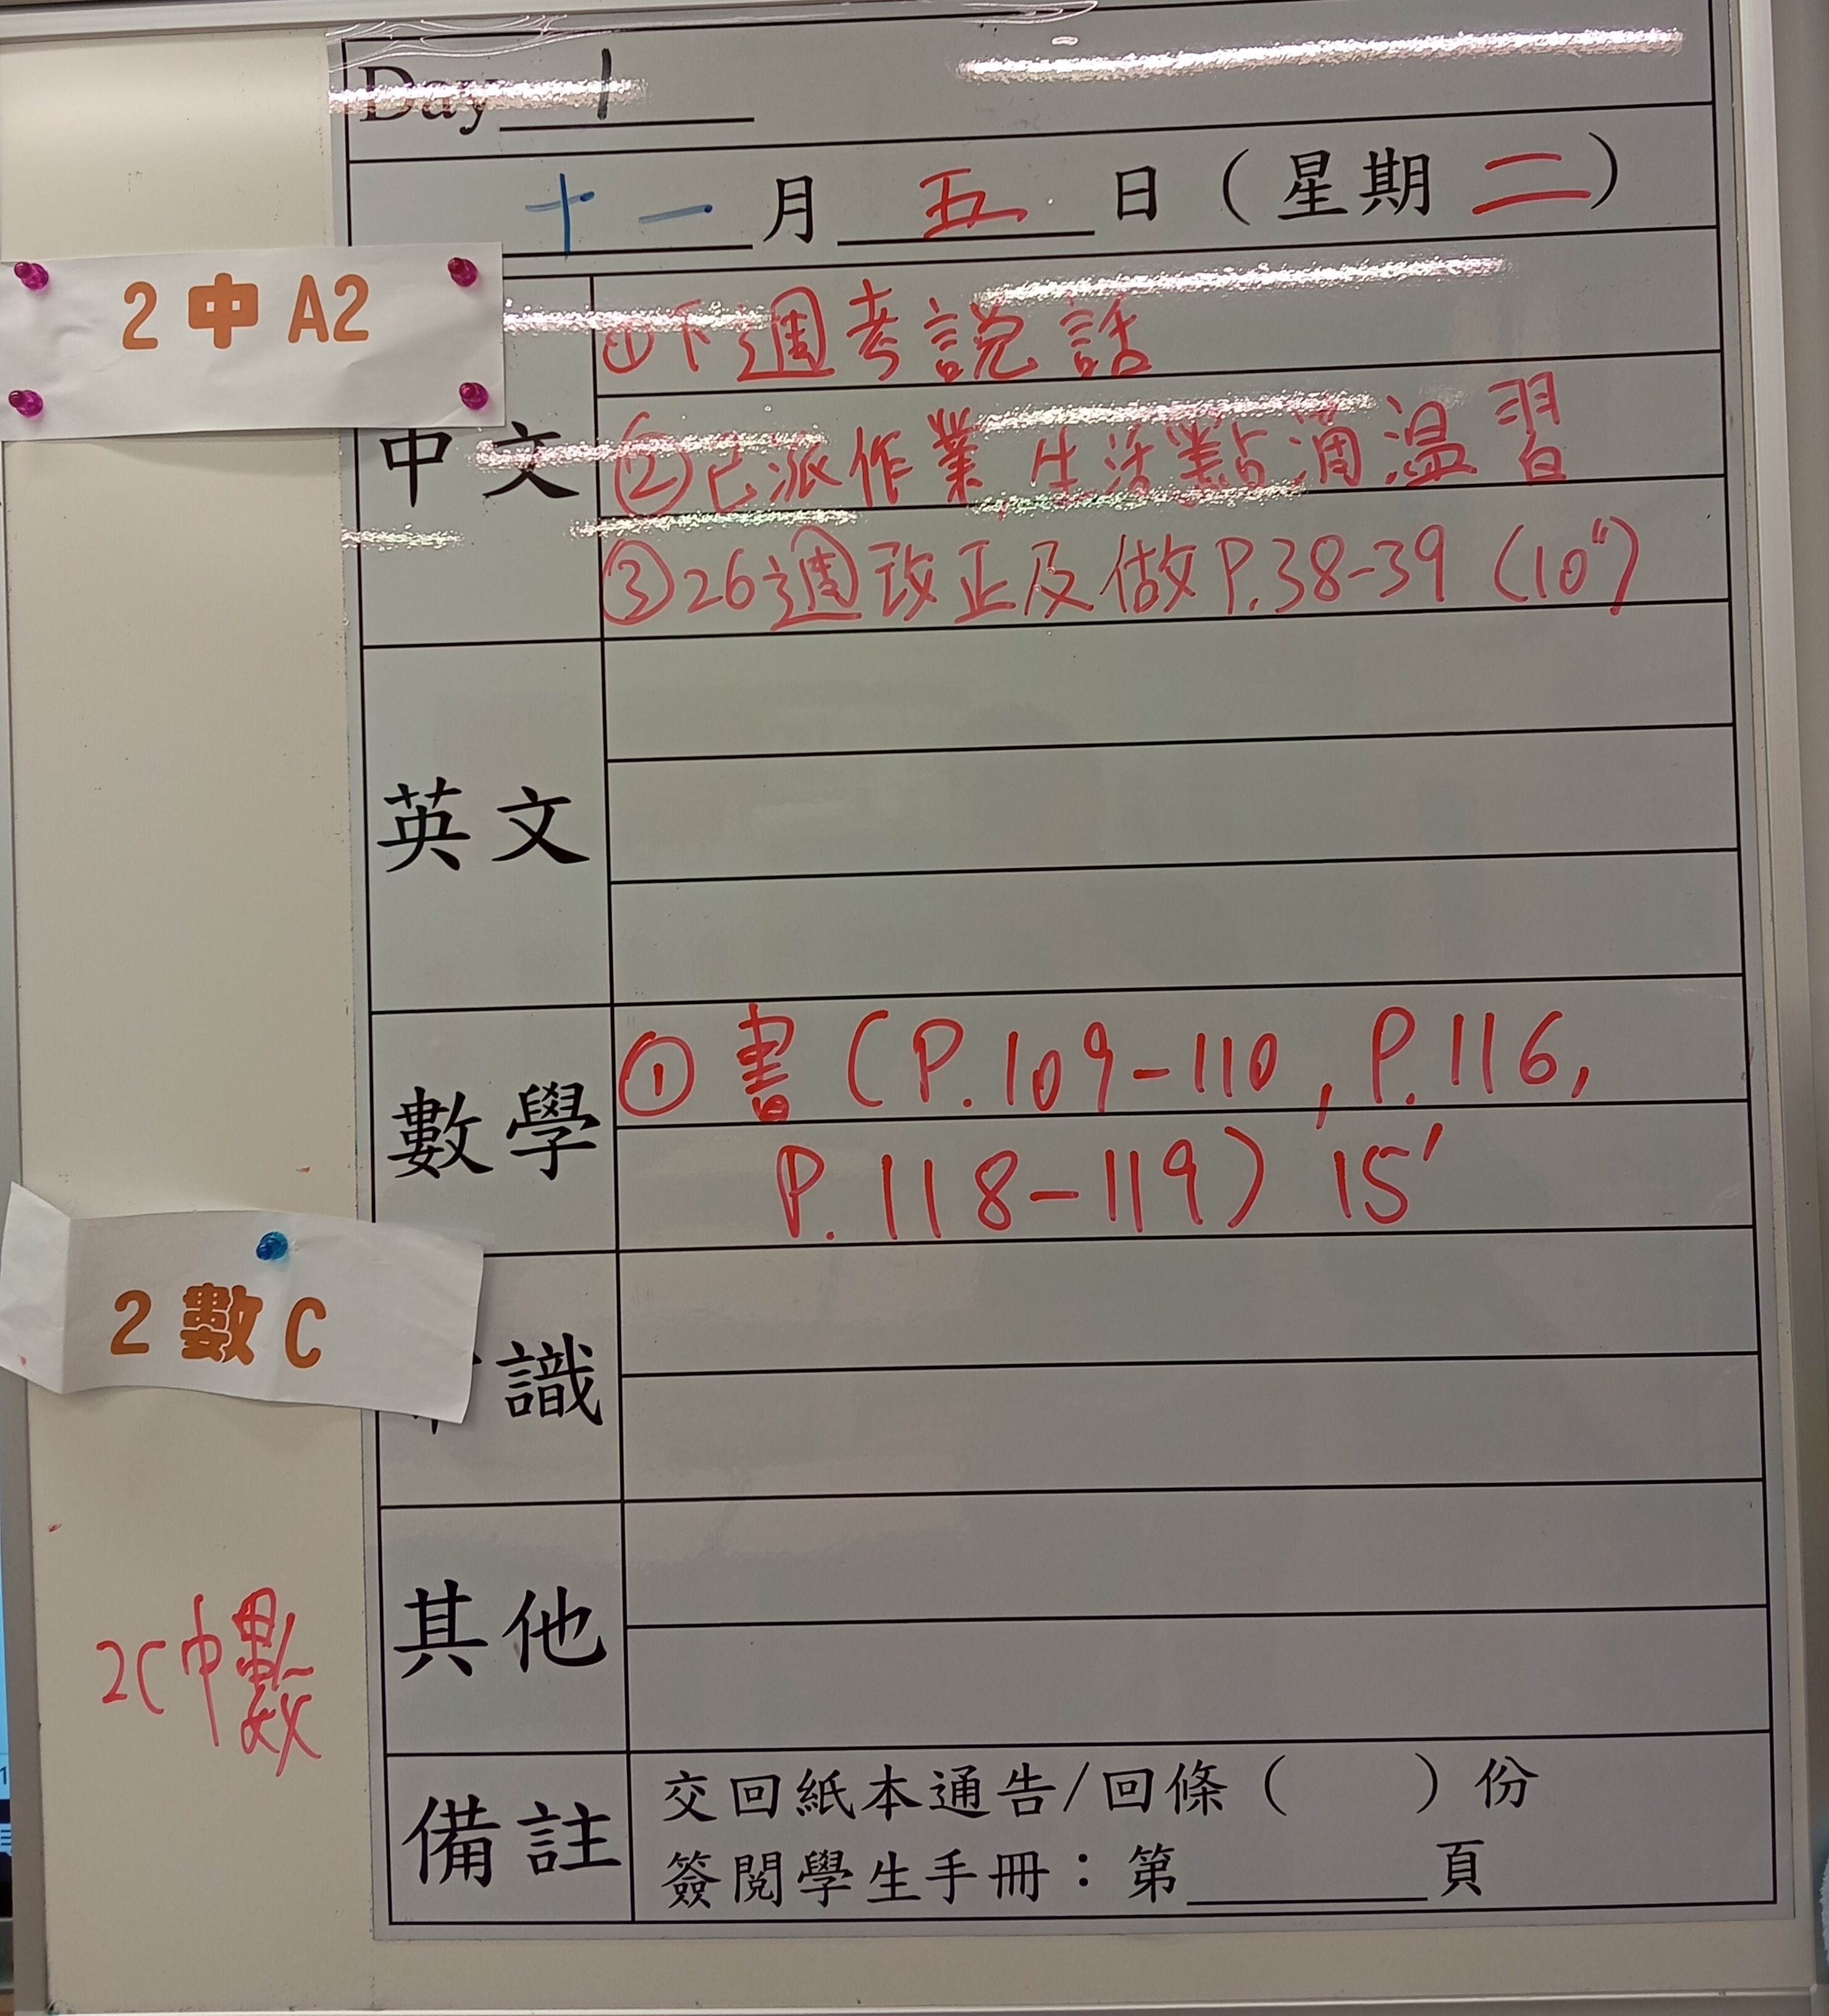 Day 1
十一月五日（星期二）
2 中 A2
中文
①下週考説話
②已派作業 生活點滴溫習
③26週改正及做P.38-39 (10")
英文
數學
①書 (P.109-110, P.116,
P.118-119) 15'
2 數 C
識
其他
2C中數
備註
交回紙本通告/回條（ ）份
簽閱學生手冊：第 頁